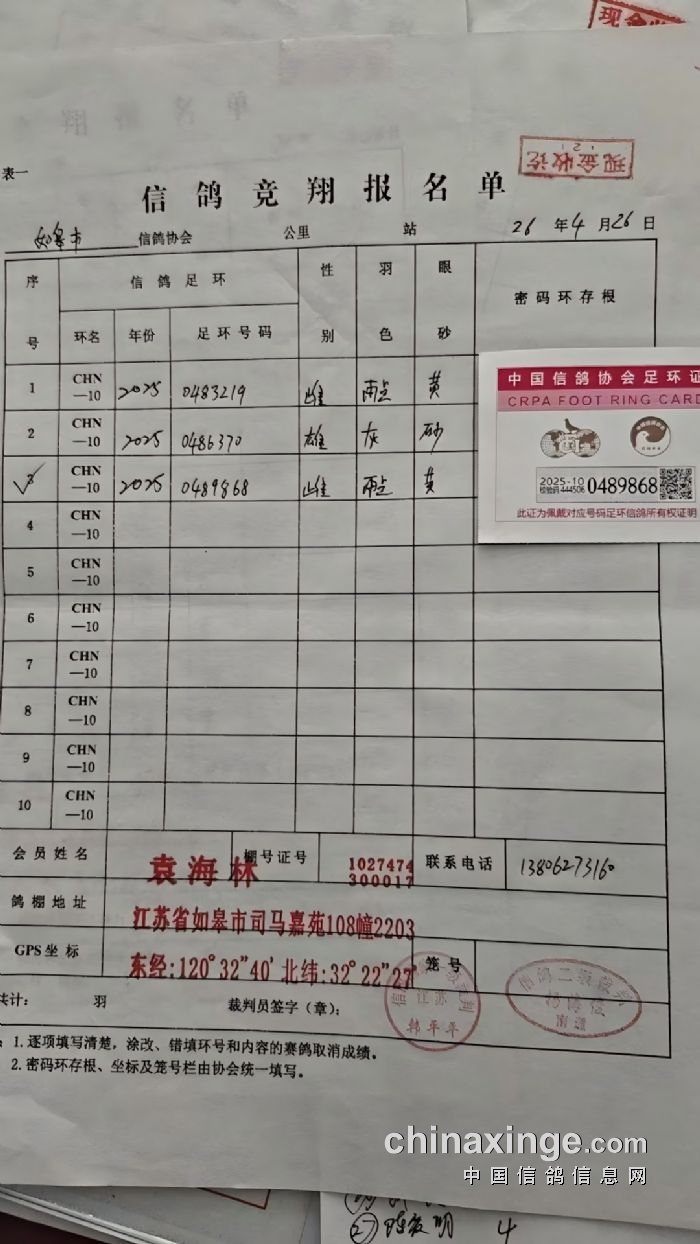 现金收讫
表一
信鸽竞翔报名单
如皋市 信鸽协会 公里 站 26 年 4 月 26 日
序号 信鸽足环 性别 羽色 眼砂 密码环存根
环名 年份 足环号码
1 CHN—10 2025 0483219 雌 雨点 黄
2 CHN—10 2025 0486370 雄 灰 砂
3 CHN—10 2025 0489868 雌 雨点 黄
中国信鸽协会足环证
CRPA FOOT RING CARD
2025-10 0489868
校验码 444506
此证为佩戴对应号码足环信鸽所有权证明
4 CHN—10
5 CHN—10
6 CHN—10
7 CHN—10
8 CHN—10
9 CHN—10
10 CHN—10
会员姓名 袁海林 棚号证号 1027474 300017 联系电话 13806273160
鸽棚地址 江苏省如皋市司马嘉苑108幢2203
GPS坐标 东经:120°32"40' 北纬:32°22"27' 笼号
共计: 羽 裁判员签字(章):
江苏
韩平平
南通
1.逐项填写清楚,涂改、错填环号和内容的赛鸽取消成绩。
2.密码环存根、坐标及笼号栏由协会统一填写。
chinaxinge.com
中国信鸽信息网
4